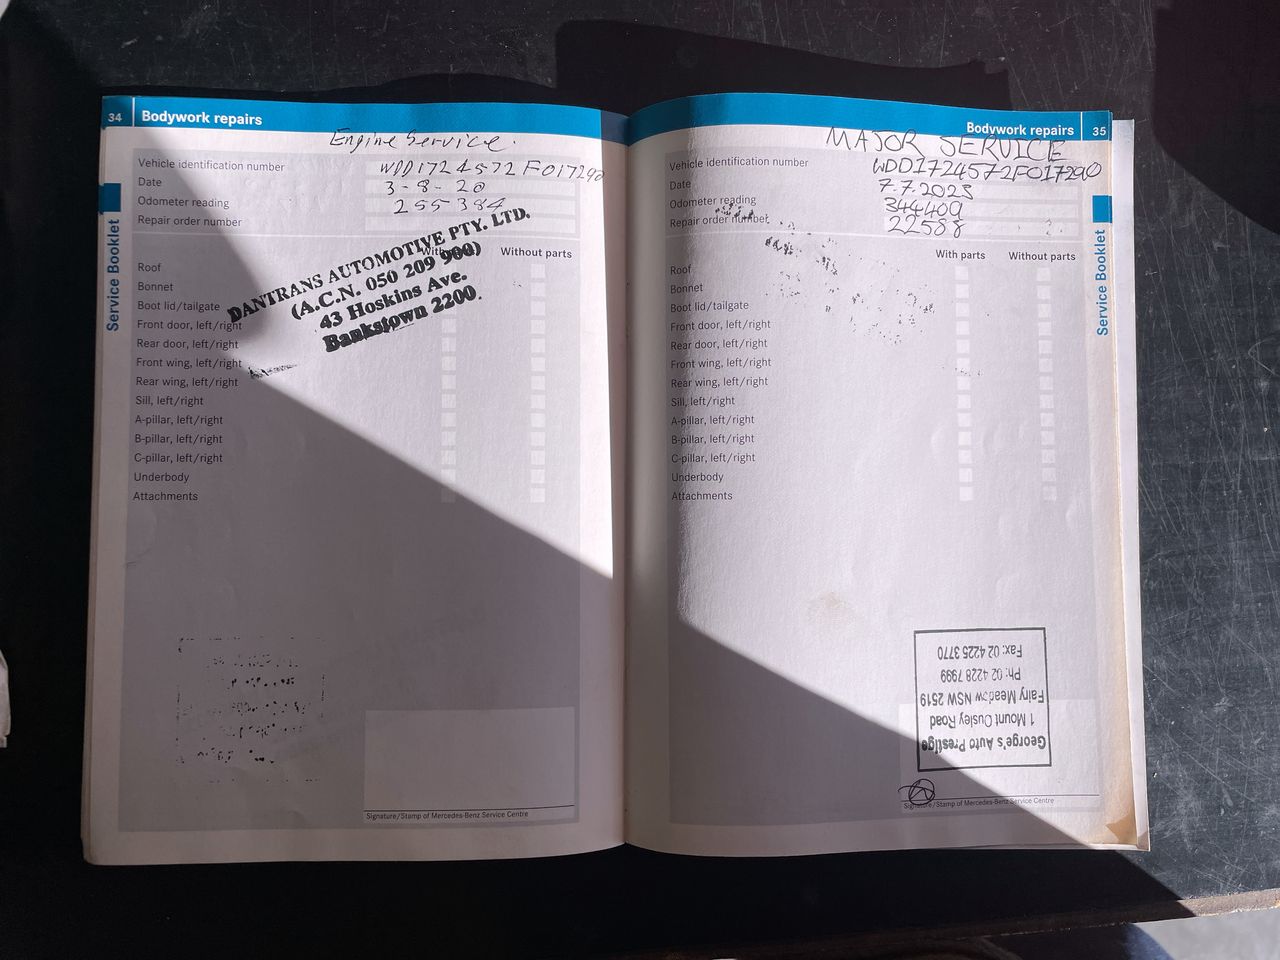 34 Bodywork repairs
Engine Service.
Vehicle identification number WDD1724572F017290
Date 3-8-20
Odometer reading 255384
Repair order number
DANTRANS AUTOMOTIVE PTY. LTD.
(A.C.N. 050 209 900)
43 Hoskins Ave.
Bankstown 2200.
Without parts
Roof
Bonnet
Boot lid/tailgate
Front door, left/right
Rear door, left/right
Front wing, left/right
Rear wing, left/right
Sill, left/right
A-pillar, left/right
B-pillar, left/right
C-pillar, left/right
Underbody
Attachments
Signature/Stamp of Mercedes-Benz Service Centre
Service Booklet
Bodywork repairs 35
MAJOR SERVICE
Vehicle identification number WDD1724572F017290
Date 7.7.2023
Odometer reading 344409
Repair order number 22588
With parts Without parts
Roof
Bonnet
Boot lid/tailgate
Front door, left/right
Rear door, left/right
Front wing, left/right
Rear wing, left/right
Sill, left/right
A-pillar, left/right
B-pillar, left/right
C-pillar, left/right
Underbody
Attachments
George's Auto Prestige
1 Mount Ousley Road
Fairy Meadow NSW 2519
Ph: 02 4228 7999
Fax: 02 4225 3770
Signature/Stamp of Mercedes-Benz Service Centre
Service Booklet